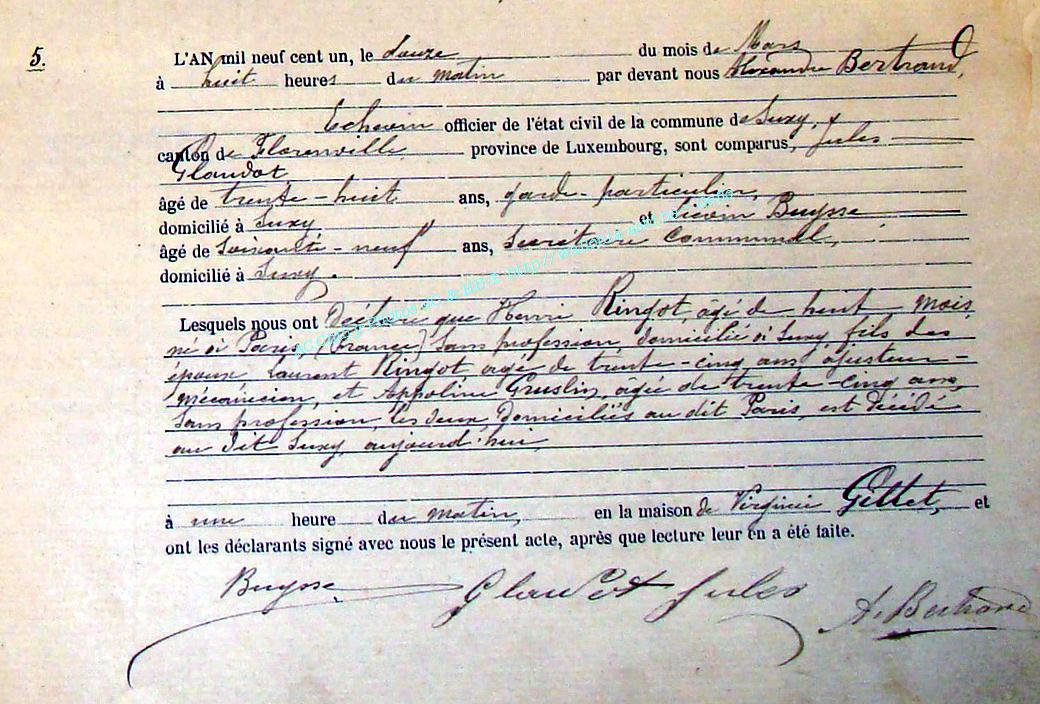 5.
L'AN mil neuf cent un, le douze du mois de Mars
à huit heures du matin par devant nous Alexandre Bertrand,
Echevin officier de l'état civil de la commune de Suxy,
canton de Florenville province de Luxembourg, sont comparus, Jules
Glaudot
âgé de trente-huit ans, garde-particulier,
domicilié à Suxy. et Liévin Buysse
âgé de Soixante-neuf ans, Secrétaire Communal,
domicilié à Suxy.
Lesquels nous ont déclaré que Henri Ringot, âgé de huit mois,
né à Paris (France) sans profession, domicilié à Suxy, fils des
époux Laurent Ringot âgé de trente-cinq ans ajusteur-
mécanicien, et Appoline Gruslin, âgée de trente-cinq ans,
sans profession, les deux domiciliés au dit Paris, est décédé
au dit Suxy, aujourd'hui
à une heure du matin, en la maison de Virginie Gillet, et
ont les déclarants signé avec nous le présent acte, après que lecture leur en a été faite.
Buysse Glaudot Jules A. Bertrand